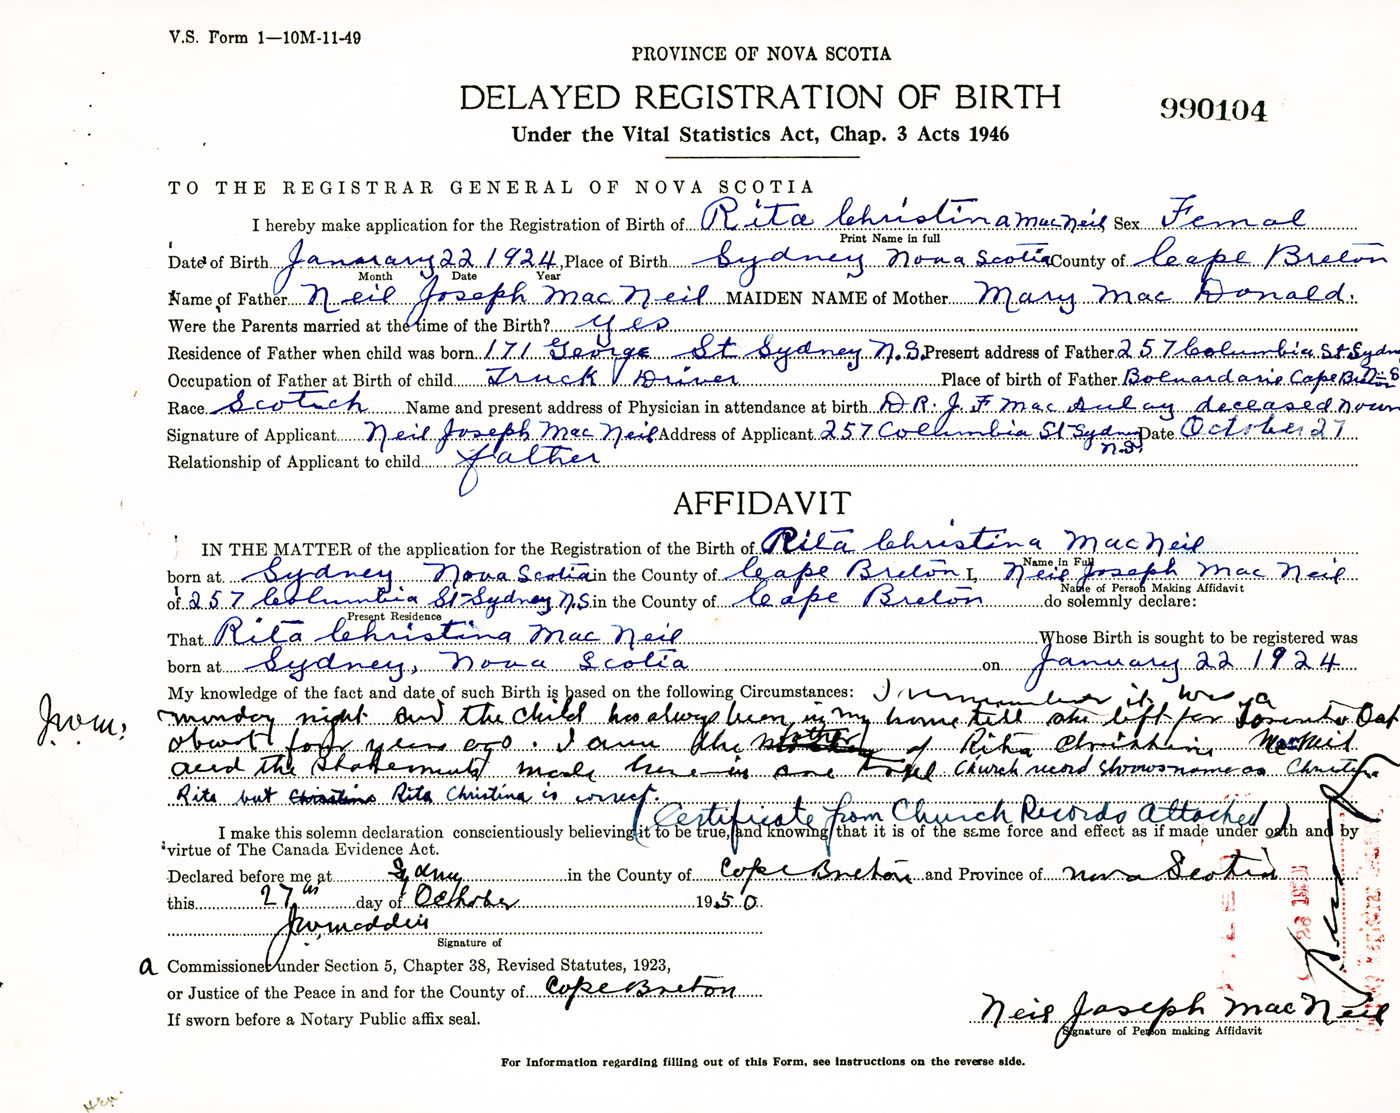 V.S. Form 1—10M-11-49
PROVINCE OF NOVA SCOTIA
DELAYED REGISTRATION OF BIRTH
990104
Under the Vital Statistics Act, Chap. 3 Acts 1946
TO THE REGISTRAR GENERAL OF NOVA SCOTIA
I hereby make application for the Registration of Birth of Rita Christina MacNeil Sex Femal
Print Name in full
Date of Birth January 22 1924, Place of Birth Sydney Nova Scotia County of Cape Breton
Month Date Year
Name of Father Neil Joseph Mac Neil MAIDEN NAME of Mother Mary Mac Donald.
Were the Parents married at the time of the Birth? yes
Residence of Father when child was born 171 George St Sydney N.S. Present address of Father 257 Columbia St Sydn
Occupation of Father at Birth of child Truck Driver Place of birth of Father Cape Breton N.S
Race Scotich Name and present address of Physician in attendance at birth DR. J. F Mac Aulay deceased now
Signature of Applicant Neil Joseph Mac Neil Address of Applicant 257 Columbia St Sydney N.S. Date October 27
Relationship of Applicant to child father
AFFIDAVIT
IN THE MATTER of the application for the Registration of the Birth of Rita Christina MacNeil
Name in Full
born at Sydney Nova Scotia in the County of Cape Breton I, Neil Joseph Mac Neil
Name of Person Making Affidavit
of 257 Columbia St Sydney N.S. in the County of Cape Breton do solemnly declare:
Present Residence
That Rita Christina Mac Neil Whose Birth is sought to be registered was
born at Sydney, Nova Scotia on January 22 1924
My knowledge of the fact and date of such Birth is based on the following Circumstances: I remember it was a
J.W.M. monday night and the child has always been in my home till she left for Toronto Ont
about four years ago. I am the father of Rita Christina MacNeil
and the statements made here-in are true Church record shows name as Christina
Rita but Christina Rita Christina is correct.
(Certificate from Church Records Attached)
I make this solemn declaration conscientiously believing it to be true, and knowing that it is of the same force and effect as if made under oath and by
virtue of The Canada Evidence Act.
Declared before me at Sydney in the County of Cape Breton and Province of Nova Scotia
this 27th day of October 1950.
J W Madden
Signature of
a Commissioner under Section 5, Chapter 38, Revised Statutes, 1923,
or Justice of the Peace in and for the County of Cape Breton
If sworn before a Notary Public affix seal.
Neil Joseph Mac Neil
Signature of Person making Affidavit
For Information regarding filling out of this Form, see instructions on the reverse side.